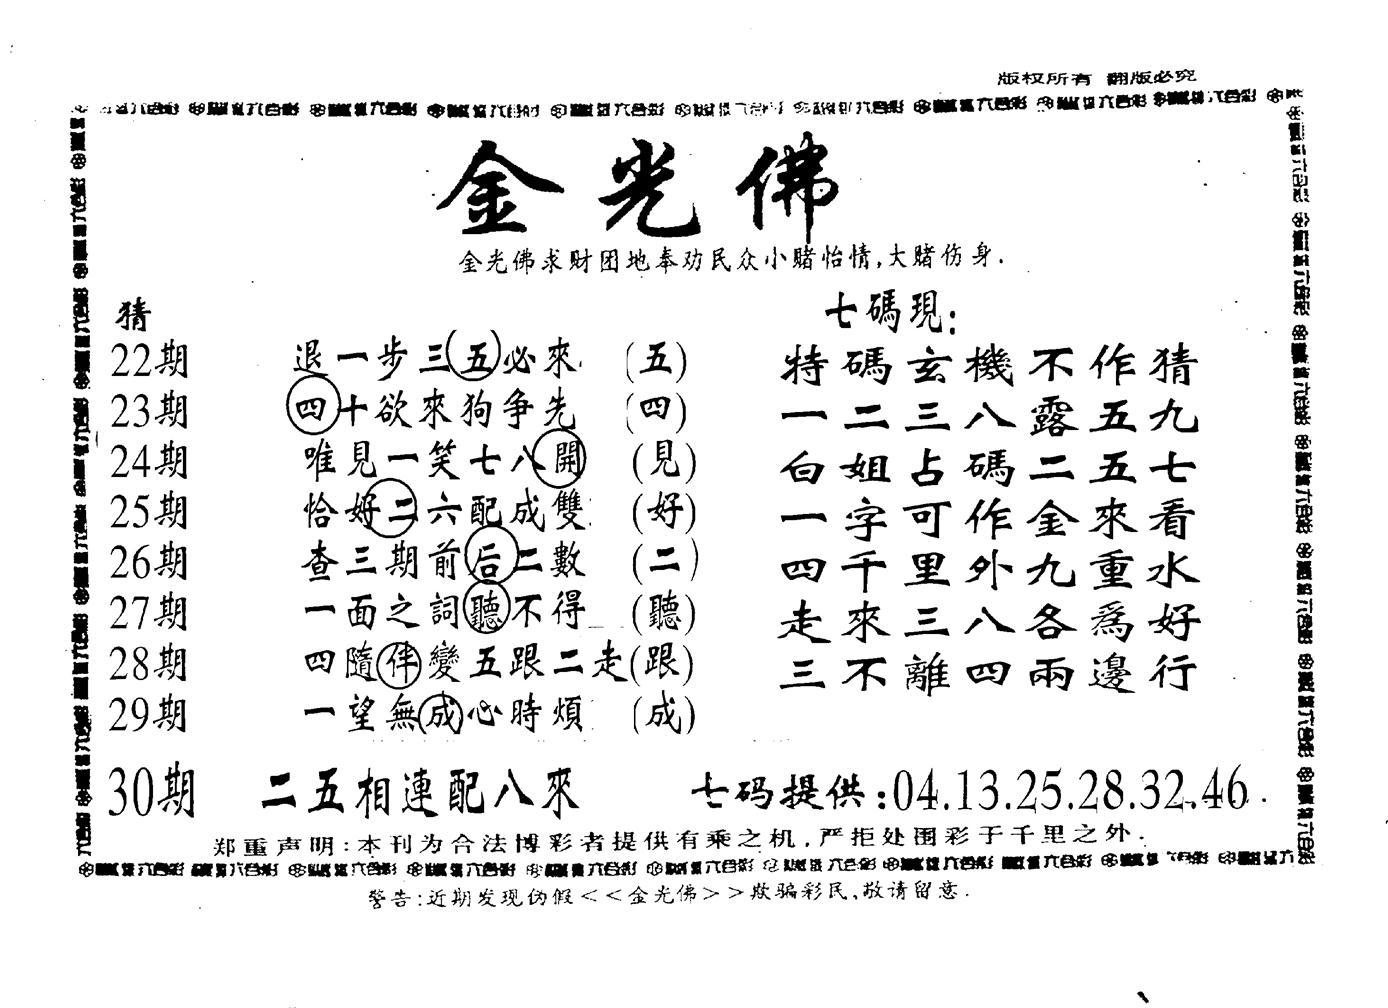 版权所有 翻版必究
金光佛
金光佛求财团地奉劝民众小赌怡情,大赌伤身.
猜
22期 退一步三五必來 (五)
23期 四十欲來狗争先 (四)
24期 唯見一笑七八開 (見)
25期 恰好二六配成雙 (好)
26期 查三期前后二數 (二)
27期 一面之詞聽不得 (聽)
28期 四隨伴變五跟二走(跟)
29期 一望無成心時煩 (成)
七碼現:
特碼玄機不作猜
一二三八露五九
白姐占碼二五七
一字可作金來看
四千里外九重水
走來三八各爲好
三不離四兩邊行
30期 二五相連配八來 七码提供:04.13.25.28.32.46.
郑重声明:本刊为合法博彩者提供有乘之机,严拒处围彩于千里之外.
警告:近期发现伪假<<金光佛>>欺骗彩民,敬请留意.